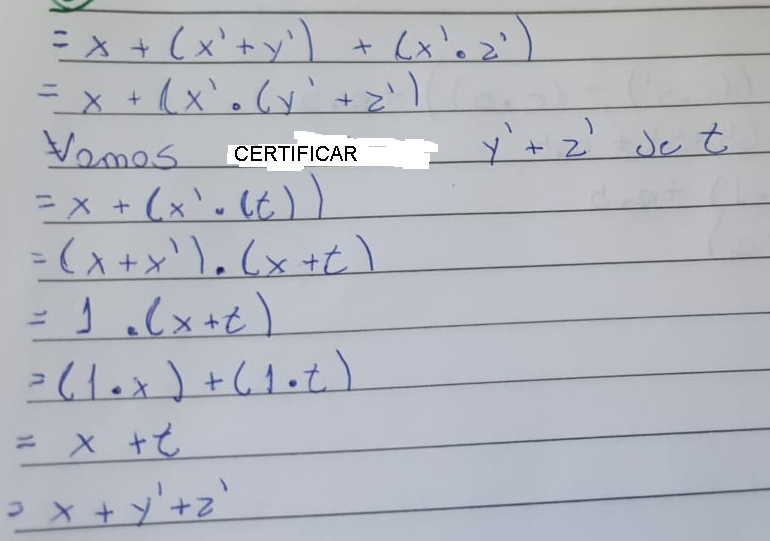 = x + (x' + y') + (x' . z')
= x + (x' . (y' + z')
Vamos CERTIFICAR y' + z' de t
= x + (x' . (t))
= (x + x') . (x + t)
= 1 . (x + t)
= (1 . x) + (1 . t)
= x + t
= x + y' + z'